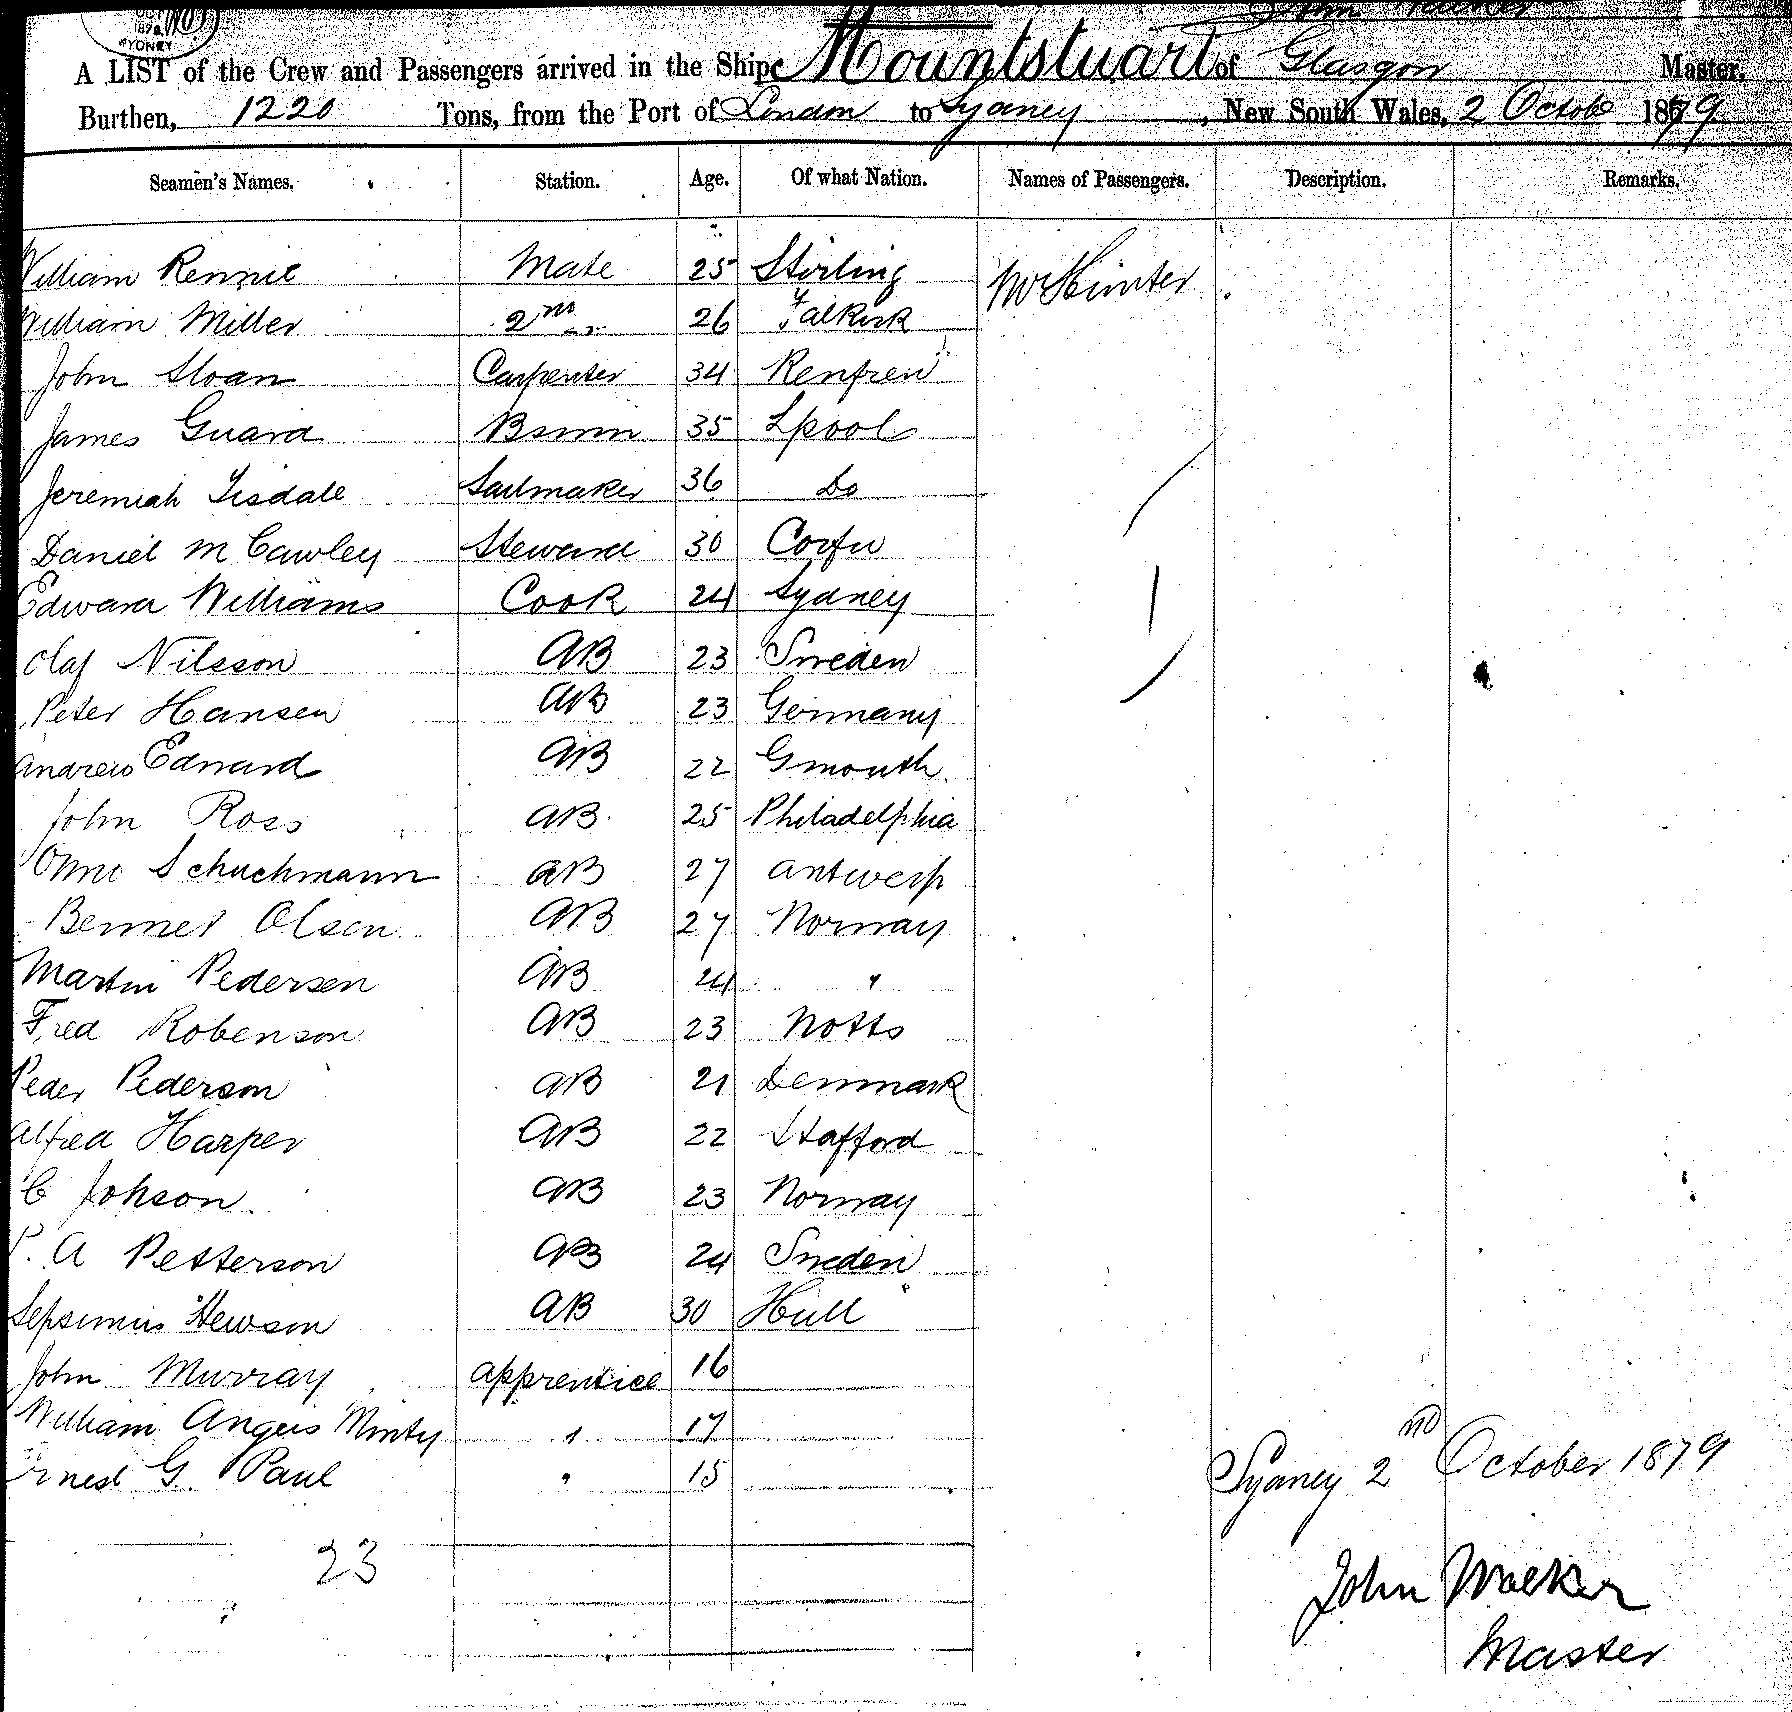 SYDNEY
John Walker
A LIST of the Crew and Passengers arrived in the Ship Mountstuart of Glasgow Master,
Burthen, 1220 Tons, from the Port of London to Sydney, New South Wales, 2 October 1879
Seamen's Names. Station. Age. Of what Nation. Names of Passengers. Description. Remarks.
William Rennie Mate 25 Stirling Mr Hunter
William Miller 2nd 26 Falkirk
John Sloan Carpenter 34 Renfrew
James Guard Bswin 35 Lpool
Jeremiah Tisdale Sailmaker 36 Do
Daniel McCawley Steward 30 Corfu
Edward Williams Cook 24 Sydney
Olaf Nilsson AB 23 Sweden
Peter Hansen AB 23 Germany
Andrew Edward AB 22 Gmouth
John Ross AB 25 Philadelphia
Schuchmann AB 27 Antwerp
Bennet Olsen AB 27 Norway
Martin Pedersen AB 24 "
Fred Robenson AB 23 Notts
Peder Pederson AB 21 Denmark
Alfred Harper AB 22 Stafford
C Johson AB 23 Norway
P. A Petterson AB 24 Sweden
Sepsimus Hewson AB 30 Hull
John Murray apprentice 16
William Angus Minty " 17
Ernest G. Paul " 15
Sydney 2nd October 1879
23
John Walker
Master